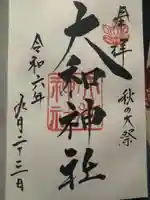 奉拝
秋の大祭
大和神社
令和六年
九月二十三日